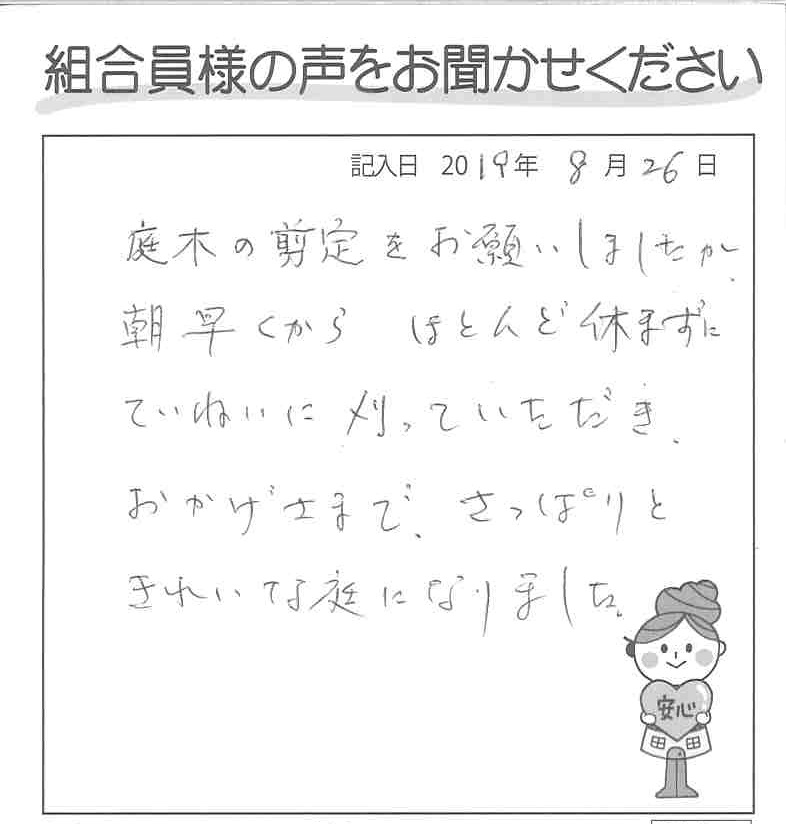 組合員様の声をお聞かせください
記入日 2019年 8月26日
庭木の剪定をお願いしましたが、
朝早くから ほとんど休まずに
ていねいに刈っていただき、
おかげさまで、さっぱりと
きれいな庭になりました。
安心